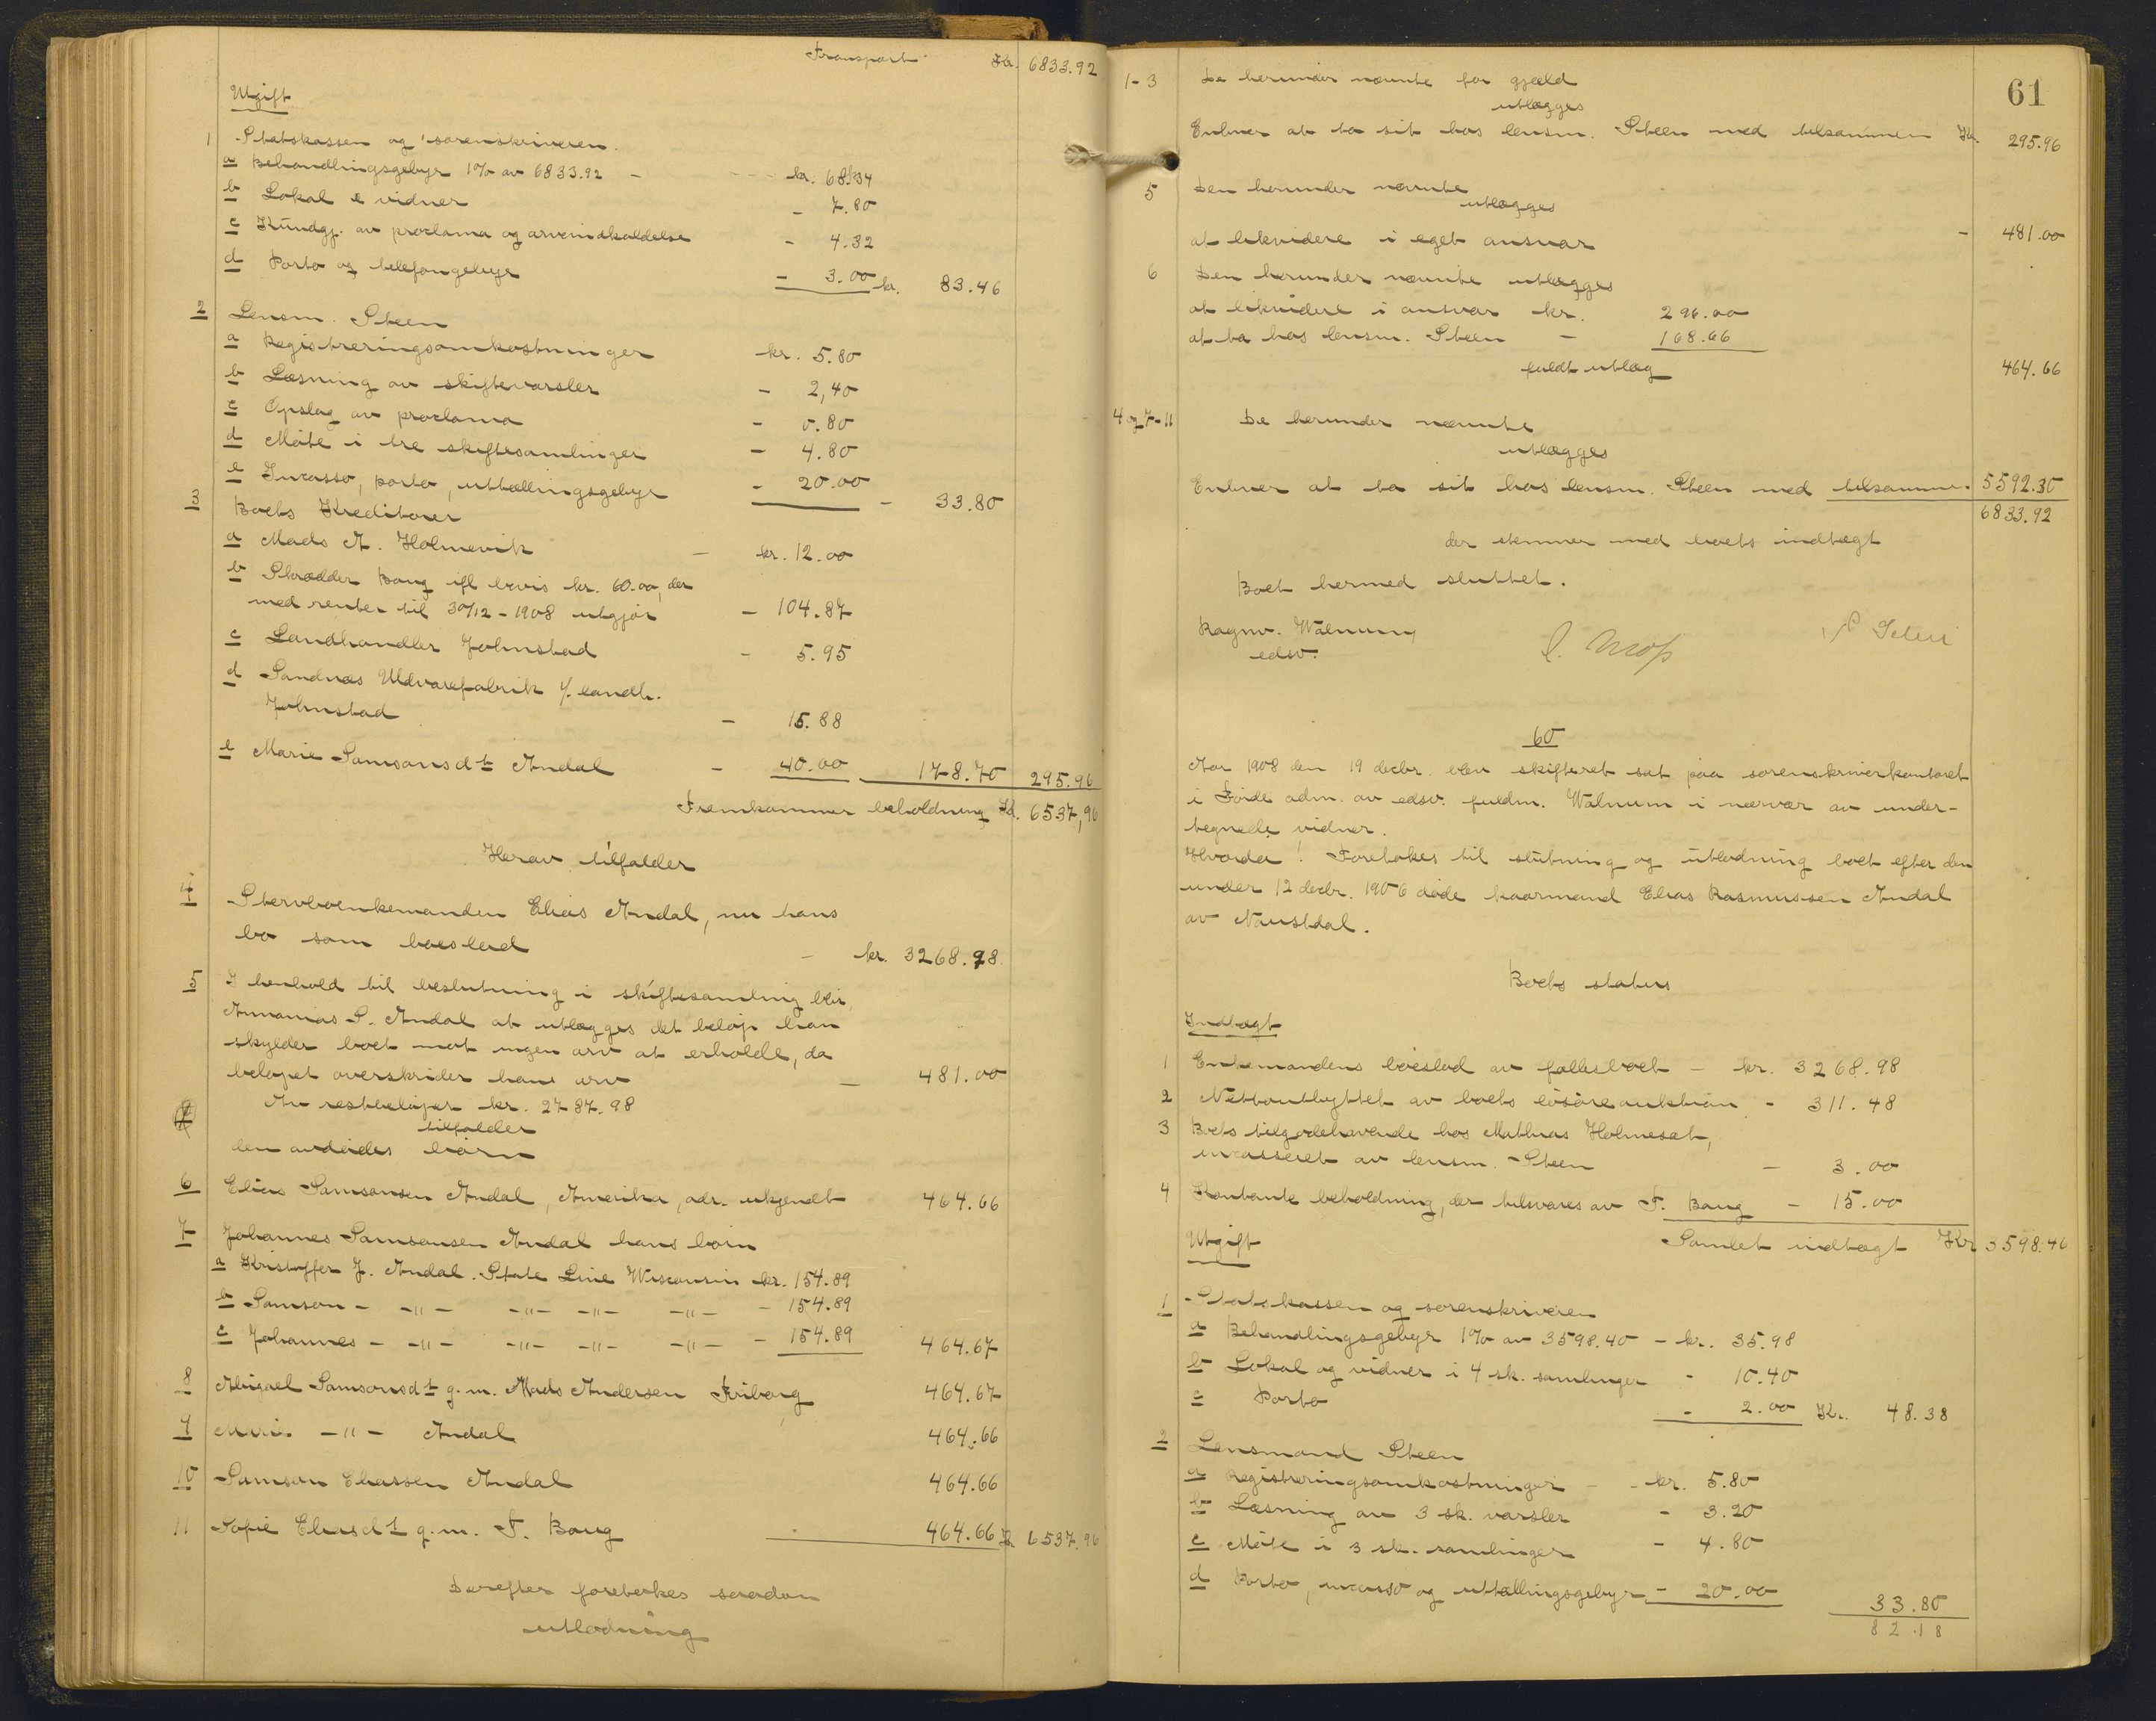 Transport Kr. 6833.92
Utgift
1 Statskassen og sorenskriveren.
a Behandlingsgebyr 1% av 6833.92 - kr. 68.34
b Lokal & vidner - 7.80
c Kundgj. av proclama og arveindkaldelse - 4.32
d Porto og telefongebyr - 3.00 kr. 83.46
2 Lensm. Steen
a Registreringsomkostninger kr. 5.80
b Læsning av skiftevarsler - 2,40
c Opslag av proclama - 0.80
d Møte i tre skiftesamlinger - 4.80
e Incasso, porto, uttællingsgebyr - 20.00 - 33.80
3 Boets Kreditorer
a Mads A. Holmevik - kr. 12.00
b Skrædder Baug ifl bevis kr. 60.00, der
med renter til 30/12-1908 utgjør - 104.87
c Landhandler Johnstad - 5.95
d Sandnæs Uldvarefabrik v/ landh.
Johnstad - 15.88
e Marie Samsonsdt Andal - 40.00 178.70 295.96
Fremkommer beholdning Kr. 6537,96
Herav tilfalder
4 Stervboenkemanden Elias Andal, nu hans
bo som boeslod - kr. 3268.98
5 I henhold til beslutning i skiftesamling blir
Annanias S. Andal at utlægges det beløp han
skylder boet mot ingen arv at erholde, da
beløpet overskrider hans arv - 481.00
Av restbeløpet kr. 2787.98
tilfalder
den avdødes børn
6 Elias Samsonsen Andal, Amerika, adr. ukjendt 464.66
7 Johannes Samsonsen Andal hans børn
a Kristoffer J. Andal. State Line Wisconsin kr. 154.89
b Samson - -"- -"- -"- -"- - 154.89
c Johannes - -"- -"- -"- -"- - 154.89 464.67
8 Abigael Samsonsdt g.m. Mads Andersen Friborg 464.67
9 Mari -"- Andal 464.66
10 Samson Eliassen Andal 464.66
11 Sofie Eliasdt g.m. F. Baug 464.66 Kr. 6537.96
Derefter foretokes saadan
utlodning
61
1-3 De herunder nævnte for gjæld
utlægges
Enhver at ta sit hos lensm. Steen med tilsammen Kr. 295.96
5 Den herunder nævnte
utlægges
at likvidere i eget ansvar - 481.00
6 Den herunder nævnte utlægges
at likvidere i ansvar kr. 296.00
at ta hos lensm. Steen - 168.66
fuldt utlæg 464.66
4 og 7-11 De herunder nævnte
utlægges
Enhver at ta sit hos lensm. Steen med tilsammen 5592.30
6833.92
der stemmer med boets indtægt
Boet hermed sluttet.
Ragnv. Walnum
edsv.
60
Aar 1908 den 19 decbr. blev skifteret sat paa sorenskriverkontoret
i Førde adm. av edsv. fuldm. Walnum i nærvær av under-
tegnede vidner.
Hvorda! Foretokes til slutning og utlodning boet efter den
under 12 decbr. 1906 døde kaarmand Elias Rasmussen Andal
av Naustdal.
Boets status
Indtægt
1 Enkemandens boeslod av fællesboet - kr. 3268.98
2 Nettoutbyttet av boets løsøreauktion - 311.48
3 Boets tilgodehavende hos Mathias Holmeset,
incasseret av lensm. Steen - 3.00
4 Kontante beholdning, der tilsvares av F. Baug - 15.00
Utgift Samlet indtægt Kr 3598.46
1 Statskassen og sorenskriveren
a Behandlingsgebyr 1% av 3598.40 - kr. 35.98
b Lokal og vidner i 4 sk. samlinger - 10.40
c Porto - 2.00 Kr. 48.38
2 Lensmand Steen
a Registreringsomkostninger - - kr. 5.80
b Læsning av 3 sk. varsler - 3.20
c Møte i 3 sk. samlinger - 4.80
d Porto, incasso og uttællingsgebyr - 20.00 33.80
82.18